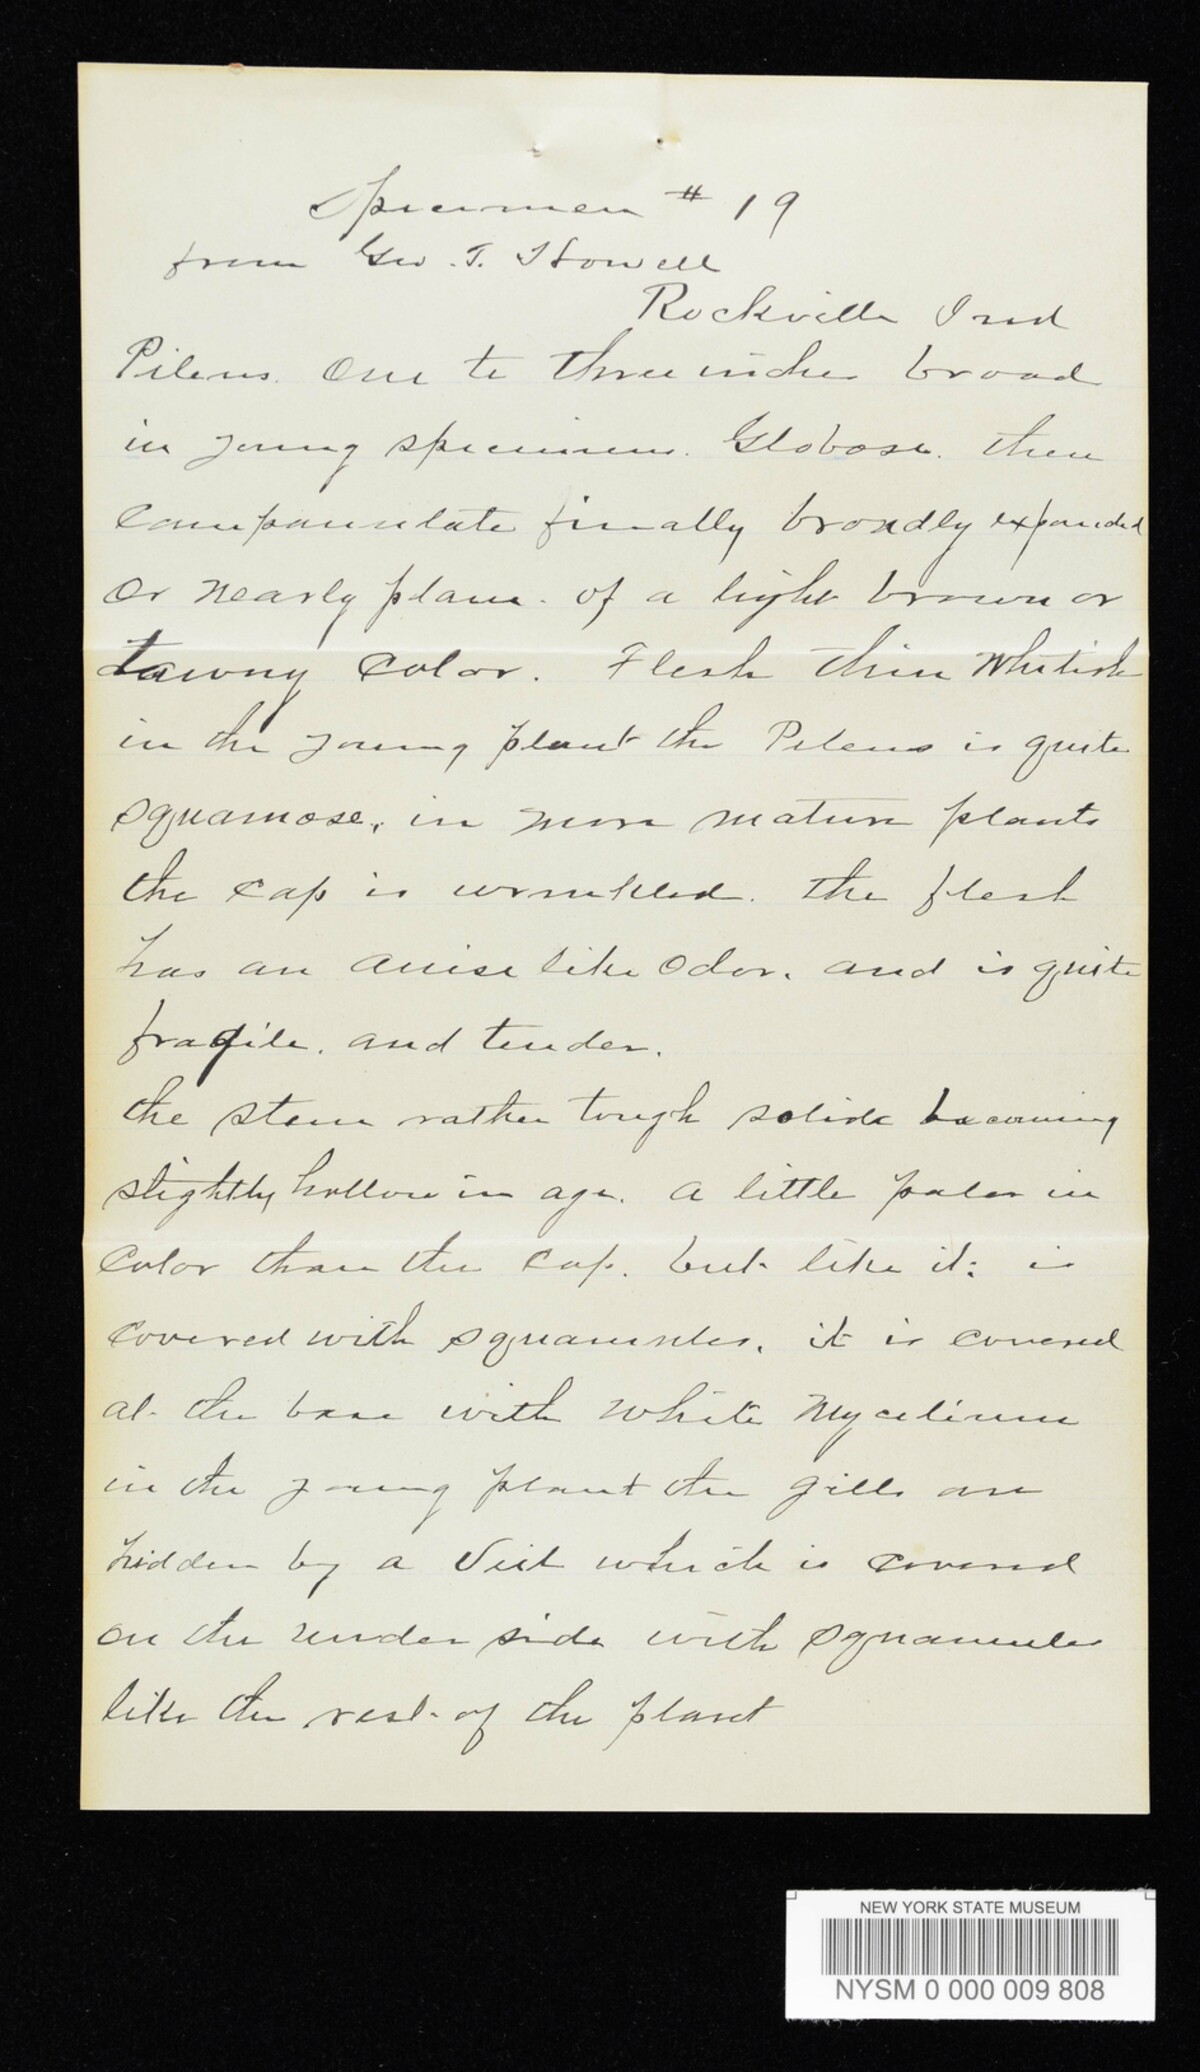 Specimen # 19
from Geo. T. Howell
Rockville Ind
Pileus. One to three inches broad
in young specimens. Globose. then
campanulate finally broadly expanded
or nearly plane. of a light brown or
tawny color. Flesh thin Whitish
in the young plant the Pileus is quite
squamose, in more mature plants
the cap is wrinkled. the flesh
has an anise like odor. and is quite
fragile. and tender.
the stem rather tough solid becoming
slightly hollow in age. a little paler in
color than the cap. but like it; is
covered with squamules. it is covered
at the base with white Mycelium
in the young plant the gills are
hidden by a Veil which is covered
on the under side with squamules
like the rest of the plant
NEW YORK STATE MUSEUM
NYSM 0 000 009 808